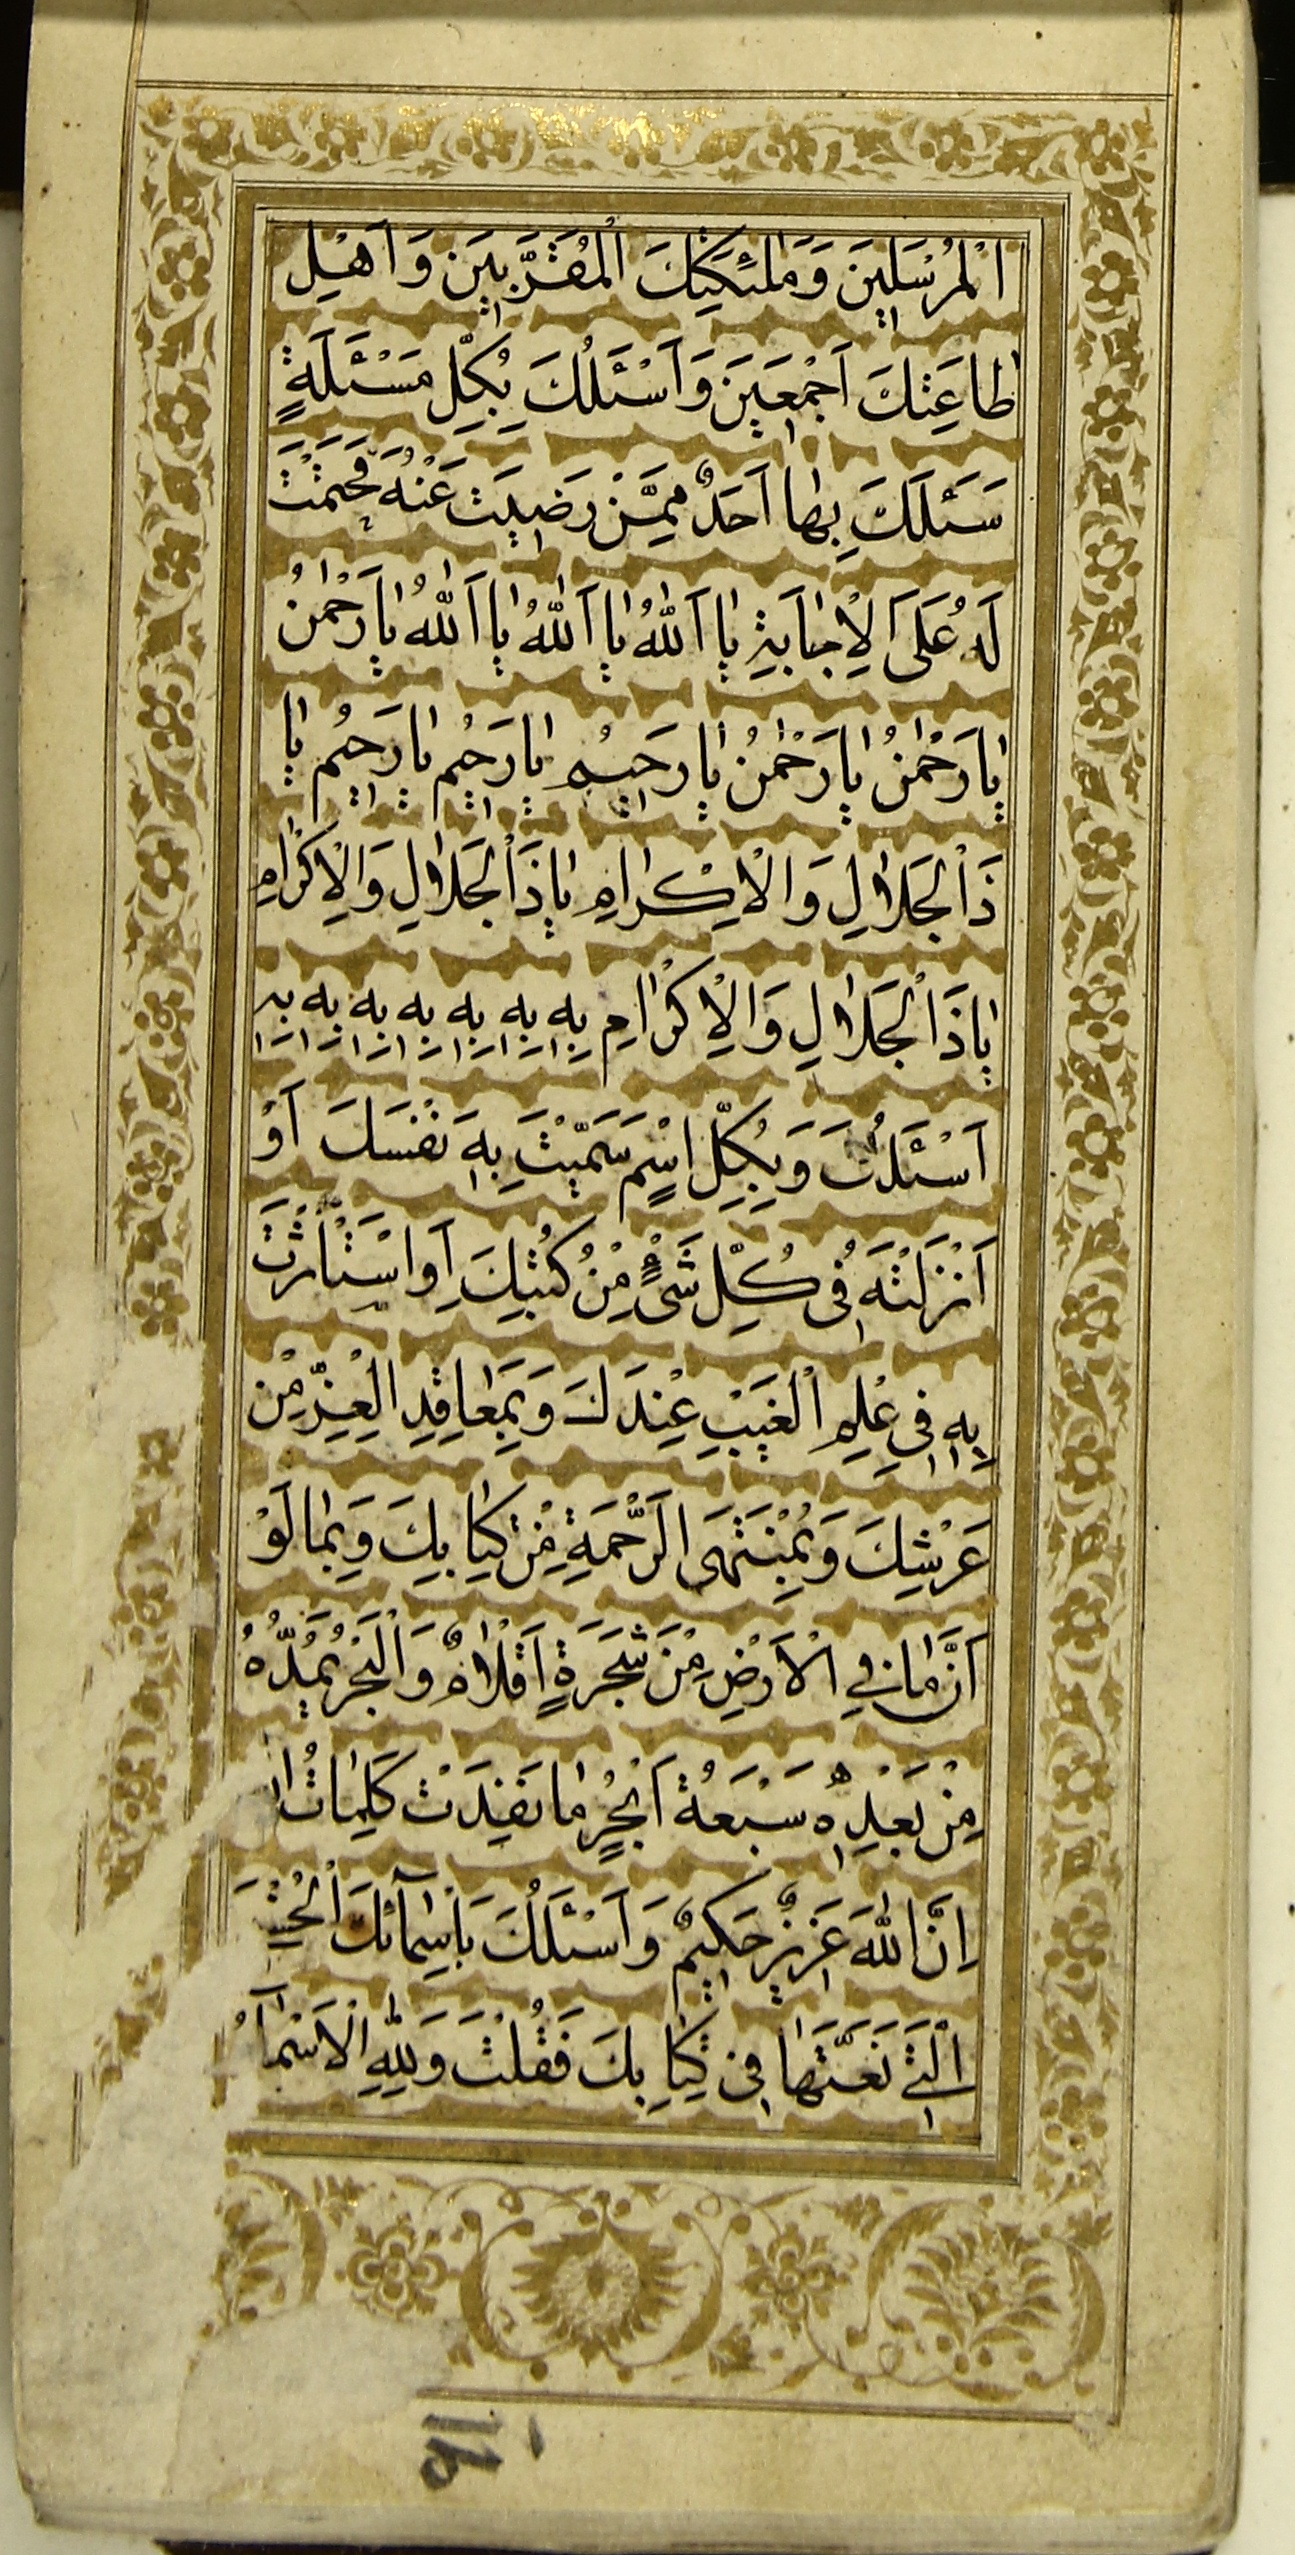 الْمُرْسَلينَ وَمَلٰئِكَتِكَ الْمُقَرَّبينَ وَاَهْلِ
طاعَتِكَ اَجْمَعينَ وَاَسْئَلُكَ بِكُلِّ مَسْئَلَةٍ
سَئَلَكَ بِها اَحَدٌ مِمَّنْ رَضيتَ عَنْهُ فَحَتَمْتَ
لَهُ عَلَى الْاِجابَةِ يا اَللّٰهُ يا اَللّٰهُ يا اَللّٰهُ يا رَحْمٰنُ
يا رَحْمٰنُ يا رَحْمٰنُ يا رَحيمُ يا رَحيمُ يا رَحيمُ يا
ذَا الْجَلالِ وَالْاِكْرامِ يا ذَا الْجَلالِ وَالْاِكْرامِ
يا ذَا الْجَلالِ وَالْاِكْرامِ بِه بِه بِه بِه بِه بِه بِه
اَسْئَلُكَ وَبِكُلِّ اسْمٍ سَمَّيْتَ بِه نَفْسَكَ اَوْ
اَنْزَلْتَهُ فى كُلِّ شَىْءٍ مِنْ كُتُبِكَ اَوِ اسْتَأْثَرْتَ
بِه فى عِلْمِ الْغَيْبِ عِنْدَكَ وَبِمَعاقِدِ الْعِزِّ مِنْ
عَرْشِكَ وَبِمُنْتَهَى الرَّحْمَةِ مِنْ كِتابِكَ وَبِما لَوْ
اَنَّ ما فِي الْاَرْضِ مِنْ شَجَرَةٍ اَقْلامٌ وَالْبَحْرُ يَمُدُّهُ
مِنْ بَعْدِه سَبْعَةُ اَبْحُرٍ ما نَفِدَتْ كَلِماتُ
اِنَّ اللّٰهَ عَزيزٌ حَكيمٌ وَاَسْئَلُكَ بِاَسْمآئِكَ
الَّتى نَعَتَّها فى كِتابِكَ فَقُلْتَ وَلِلّٰهِ الْاَسْمآءُ